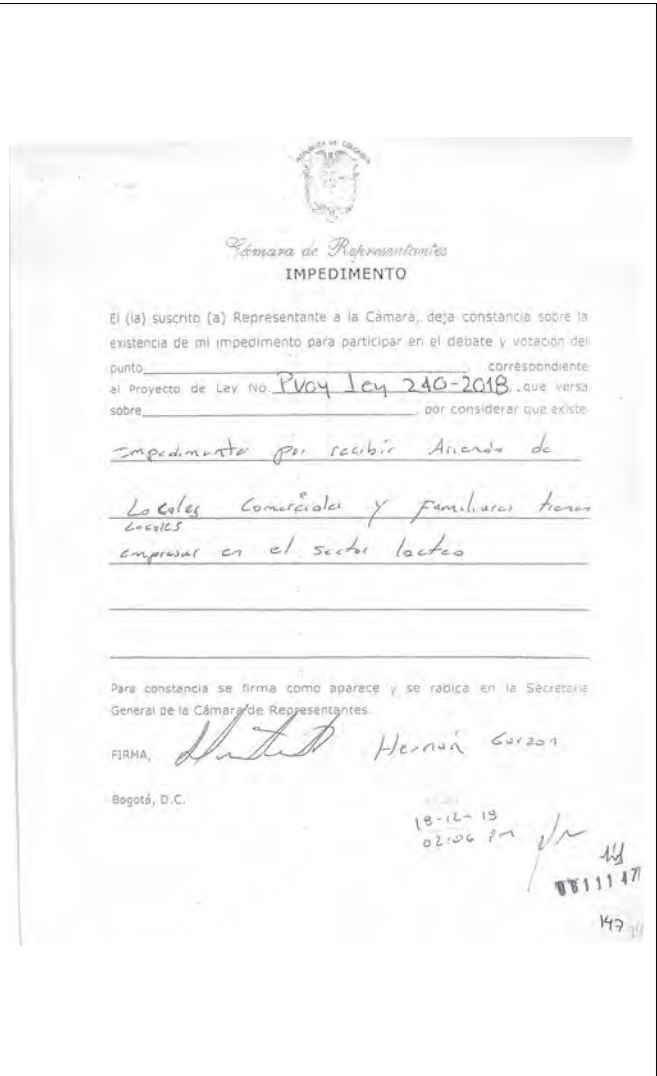 REPUBLICA DE COLOMBIA
Cámara de Representantes
IMPEDIMENTO
El (la) suscrito (a) Representante a la Cámara, deja constancia sobre la
existencia de mi impedimento para participar en el debate y votación del
punto correspondiente
al Proyecto de Ley No. Pvoy Ley 240-2018, que versa
sobre , por considerar que existe
Impedimento por recibir Ariendo de
Locales Comerciales y Familiares tienen
Locales
empresas en el sector lacteo
Para constancia se firma como aparece y se radica en la Secretaria
General de la Cámara de Representantes.
FIRMA, Hernan Garzon
Bogotá, D.C.
18-12-18
02:06 PM
147